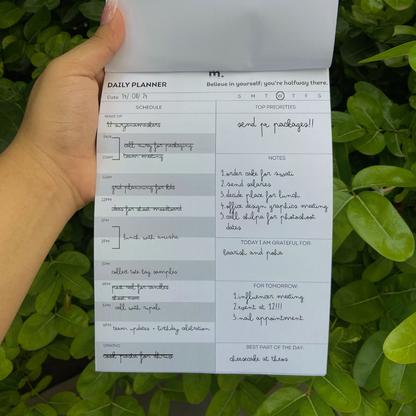 m.
DAILY PLANNER
Believe in yourself; you're halfway there.
Date 14/ 08/ 24
S M T W T F S
SCHEDULE
WAKE UP
9AM
call for packaging
10AM
team meeting
11AM
grid planning for
12PM
ideas for shoot moodboard
1PM
2PM
lunch with
3PM
collect tote bag samples
4PM
reel for candles
5PM
call with
6PM
team updates + birthday celebration
EVENING
cook pasta for
TOP PRIORITIES
send pr packages!!
NOTES
1. order cake for swati
2. send salaries
3. decide place for lunch
4. office design graphics meeting
5. call shilpa for photoshoot
dates
TODAY I AM GRATEFUL FOR:
baarish and poha
FOR TOMORROW:
1. influencer meeting
2. event at 12!!!
3. nail appointment
BEST PART OF THE DAY:
cheesecake at